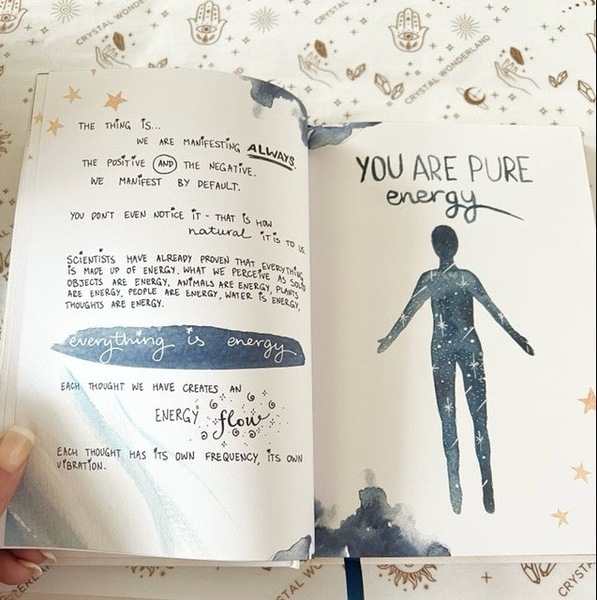 CRYSTAL WONDERLAND
CRYSTAL WONDERLAND
THE THING IS...
WE ARE MANIFESTING ALWAYS.
THE POSITIVE AND THE NEGATIVE.
WE MANIFEST BY DEFAULT.
YOU DON'T EVEN NOTICE IT - THAT IS HOW
natural IT IS TO US.
SCIENTISTS HAVE ALREADY PROVEN THAT EVERYTHING
IS MADE UP OF ENERGY. WHAT WE PERCEIVE AS SOLID
OBJECTS ARE ENERGY, ANIMALS ARE ENERGY, PLANTS
ARE ENERGY, PEOPLE ARE ENERGY, WATER IS ENERGY,
THOUGHTS ARE ENERGY.
everything is energy
EACH THOUGHT WE HAVE CREATES AN
ENERGY flow
EACH THOUGHT HAS ITS OWN FREQUENCY, ITS OWN
VIBRATION.
YOU ARE PURE
energy
CRYSTAL
CRYSTAL WO
CRYSTAL